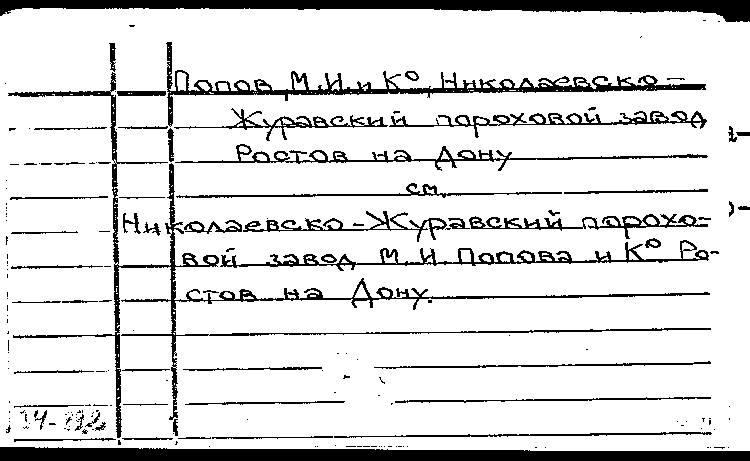 Попов, М.И. и К⁰, Николаевско-
Журавский пороховой завод
Ростов на Дону
см.
Николаевско-Журавский порохо-
вой завод М.И. Попова и К⁰ Ро-
стов на Дону.